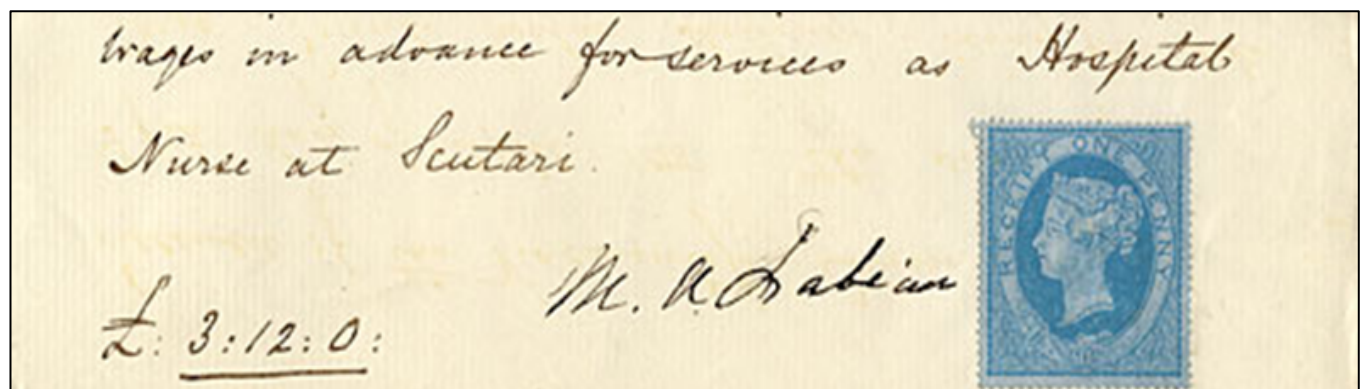 Wages in advance for services as Hospital
Nurse at Scutari.
M. A. Fabian
£: 3:12:0:
RECEIPT ONE PENNY